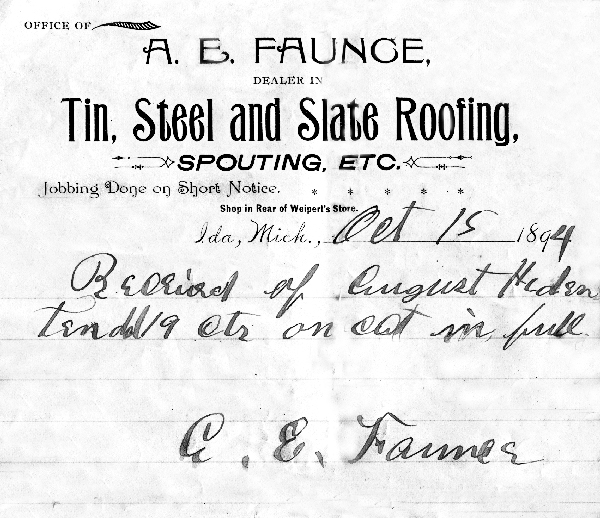 OFFICE OF
A. E. FAUNCE,
DEALER IN
Tin, Steel and Slate Roofing,
SPOUTING, ETC.
Jobbing Done on Short Notice. * * * * *
Shop in Rear of Weipert's Store.
Ida, Mich., Oct 15 1894
Received of August Heden
ten 19 cts on act in full
A. E. Faunce